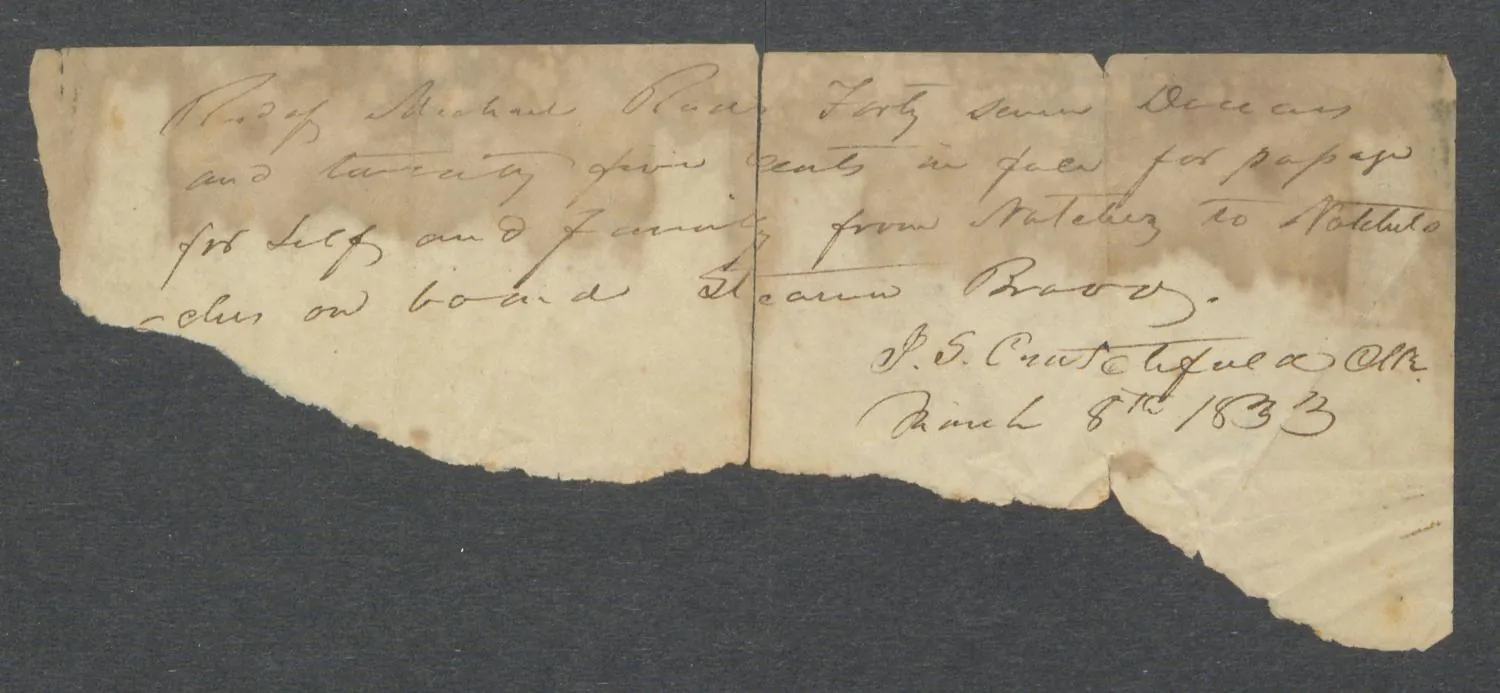 Recd of Michael Forty seven Dollars
and twenty five cents in full for passage
for self and Family from Natchez to Natchito
-ches on board Steam Bravo.
J. S. Crutchfield Clk.
March 8th 1833